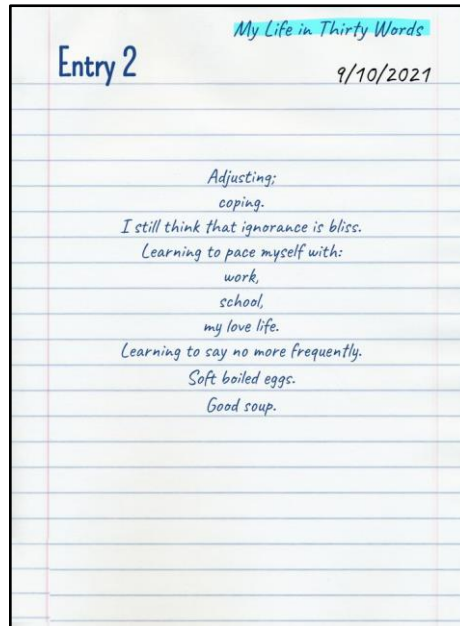 My Life in Thirty Words
Entry 2
9/10/2021
Adjusting;
coping.
I still think that ignorance is bliss.
Learning to pace myself with:
work,
school,
my love life.
Learning to say no more frequently.
Soft boiled eggs.
Good soup.